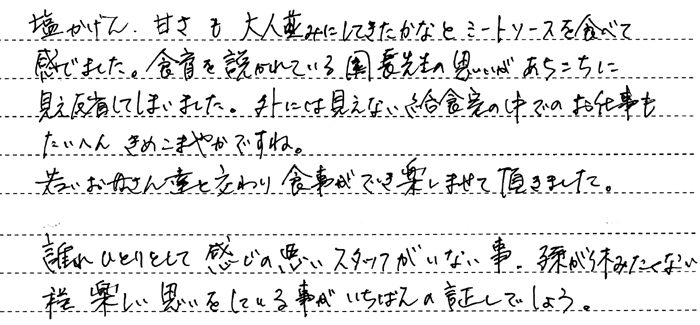 塩かげん、甘さも大人並みにしてきたかなとミートソースを食べて
感でました。食育を説かれている園長先生の思いがあちこちに
見え反省してしまいました。外には見えない給食室の中でのお仕事も
たいへんきめこまやかですね。
若いお母さん達と交わり食事ができ楽しませて頂きました。
誰れひとりとして感じの悪いスタッフがいない事。孫が休みたくない
程楽しい思いをしている事がいちばんの証しでしょう。